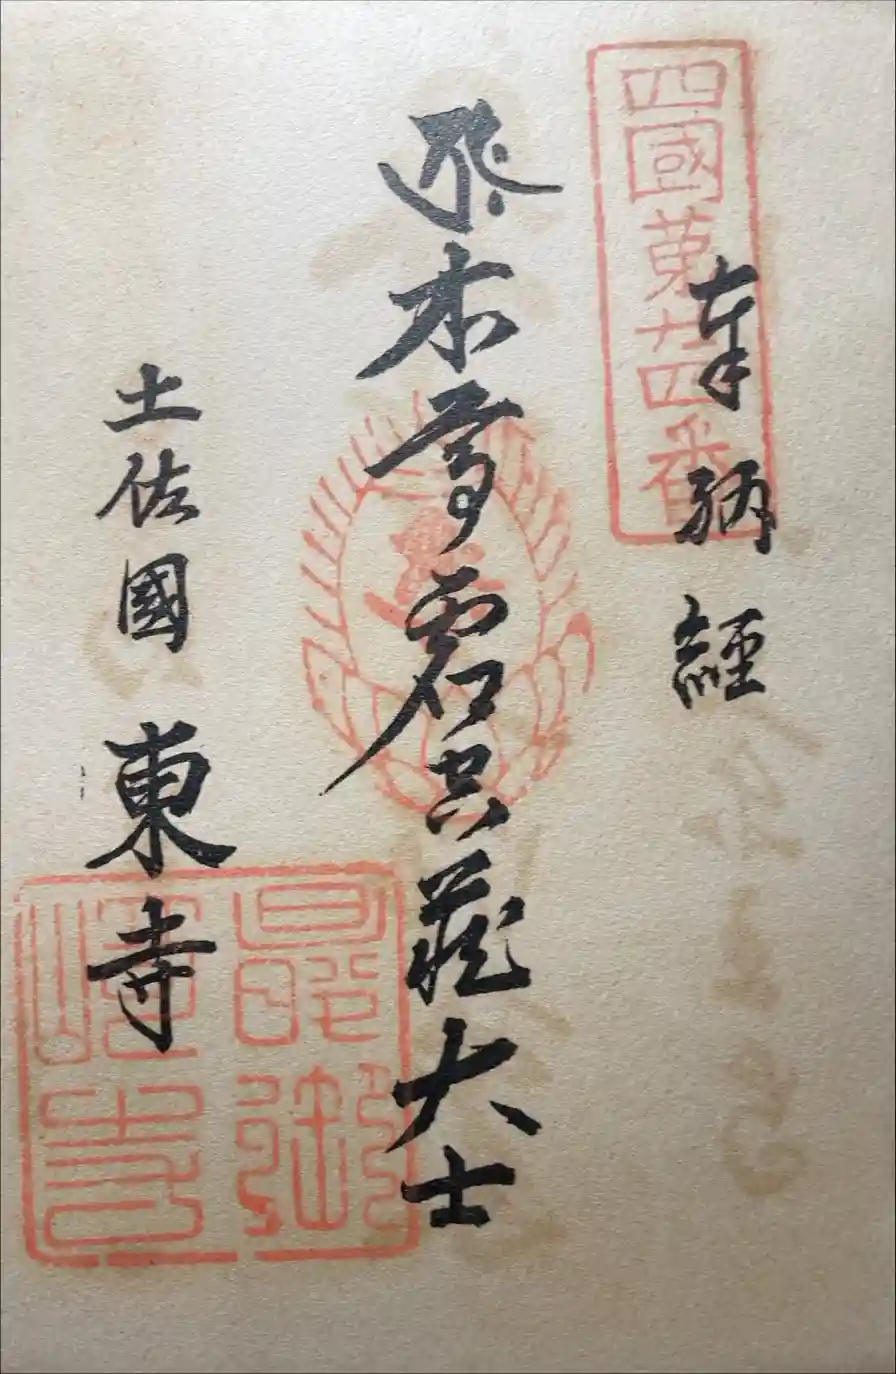 四國苐廿四番
奉納経
本尊虚空蔵大士
土佐國 東寺
最御﨑寺